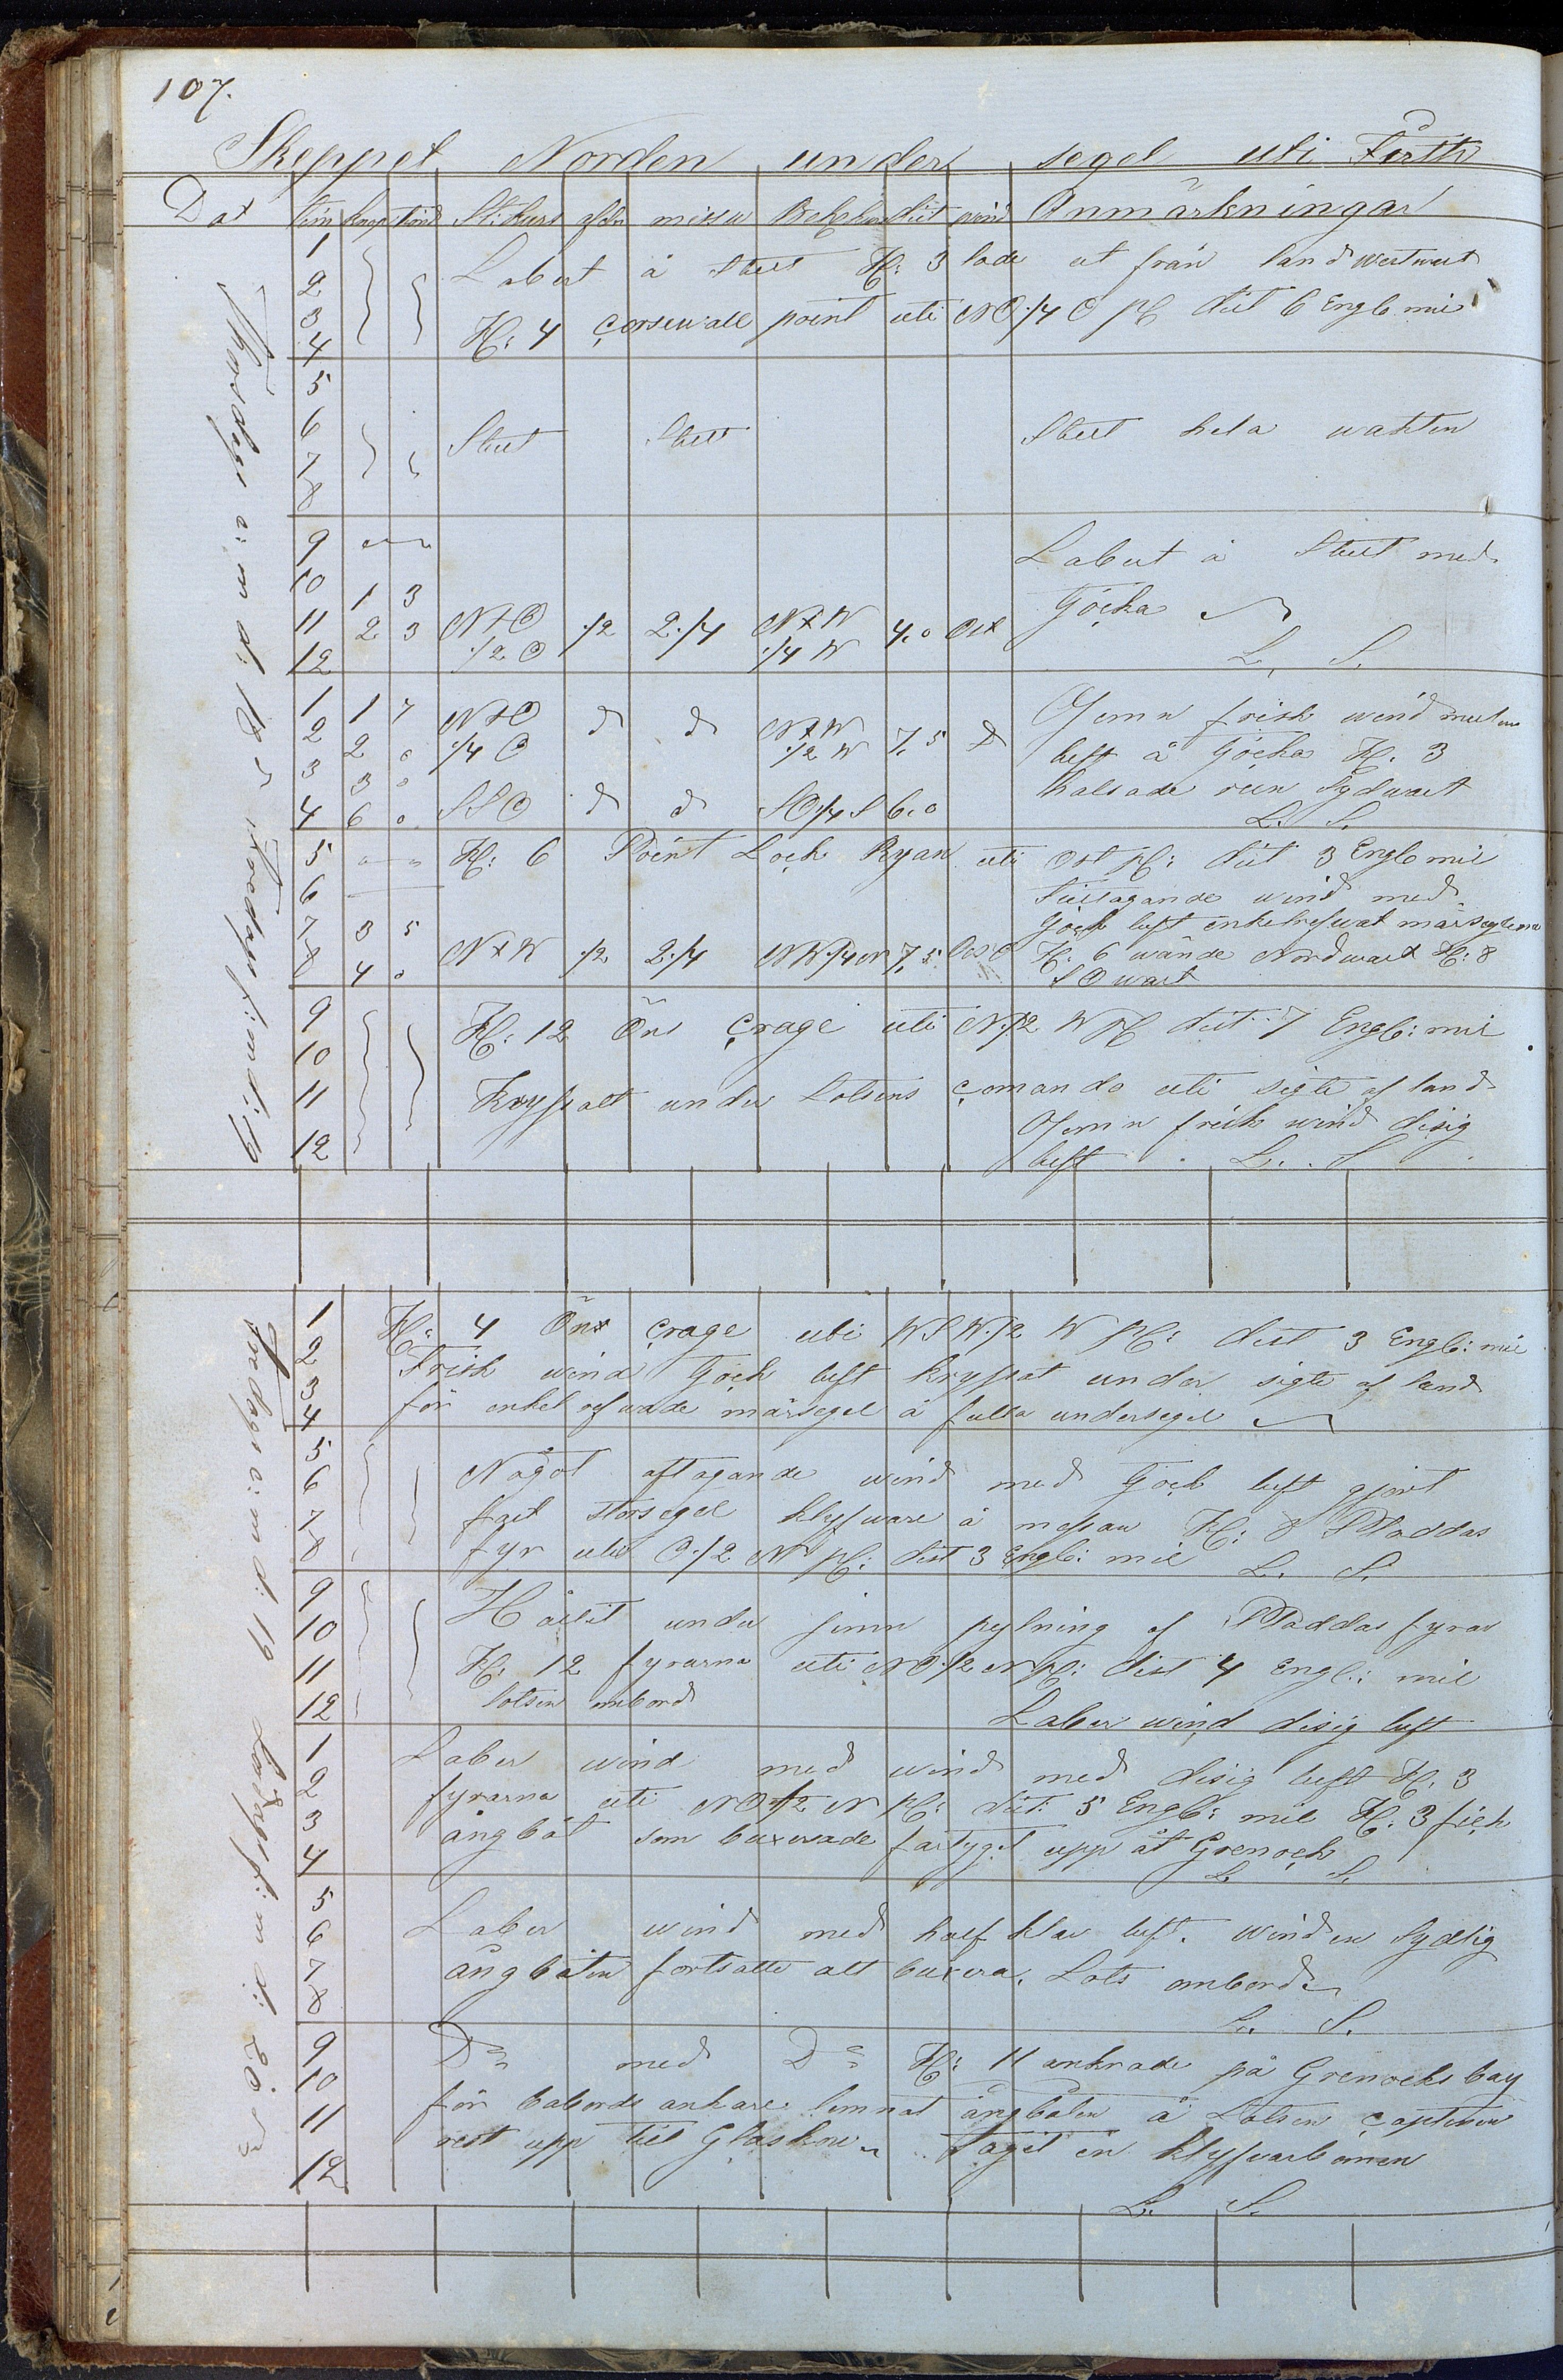 107.
Skeppet Norden under segel uti Firth
Dat tim knop tiond St:kurs afdr missw Behh kurs dist wind Anmärkningar
1
2 Labert å Stilt Kl: 3 lade ut från land westwert
3
4 Kl: 4 Corsewall point uti NO ¼ O pC dist 6 Engl mil
5
6 Stilt Stilt Stilt hela wakten
7
8
9 Labert å Stilt med
10 1 3 tjöcka
11 2 3 NtO ½ 2¼ NtW 4.0 Ost
12 ½ O ¼ W L. S.
1 1 7 NtO d d NtW Jemn frisk wind mulen
2 2 0 ¼ O ½ W 7.5 d luft å tjöcka Kl. 3
3 3 0 halsade run Sydwart
4 6 0 SSO d d SO ¼ S 6.0 L. S.
5 Kl: 6 Point Loch Ryan uti Ost pC: dist 3 Engl mil
6 tilltagande wind med
7 3 5 tjock luft enkelrefwat märsseglena
8 4 0 NtW ½ 2¼ NW ¼ N 7.5 Kl: 6 wände Nordwart Kl: 8
SO wart
9 Kl: 12 Öns Crage uti N ½ W pC dist: 7 Engl: mil
10
11 Kryssat under Lotsens Comando uti sigte af land
Jemn frisk wind disig
12 luft L. S
Thorsdags e: m d: 18 Fredags f: m d: 19
1 Kl: 4 Öns Crage uti WSW ½ W pC: dist 3 Engl: mil
2 Frisk wind tjöck luft kryssat under sigte af land
3
4 för enkel refwade märssegel å fulla undersegel
5
6 Något aftagande wind med tjock luft gjort
7 fast storsegel klyfware å messan Kl: 8 Pladdas
8 fyr uti O ½ N pC: dist 3 Engl: mil L. S.
9 Hållit under jemn pejlning af Pladdas fyrar
10
11 Kl. 12 fyrarna uti NO ½ N pC: dist 4 Engl: mil
12 lotsen ombord Laber wind disig luft
1 Laber wind med wind med disig luft Kl. 3
2 fyrarna uti NO ½ N pC: dist: 5 Engl: mil Kl. 3 fick
3 ångbåt som buxerade fartyget upp åt Grenock
4 L. S.
5
6 Laber wind med half klar luft. winden Sydlig
7 ångbåten fortsatte att buxera. Lots ombord
8 L. S.
9 Do med Do Kl: 11 ankrade på Grenocks bay
10
11 för babords ankare lemnat ångbåten å Lotsen Captenen
rest upp till Glaskow tagit in klyfvarbomen
12
L. S.
Fredags e: m d: 19 Lördags f: m d: 20